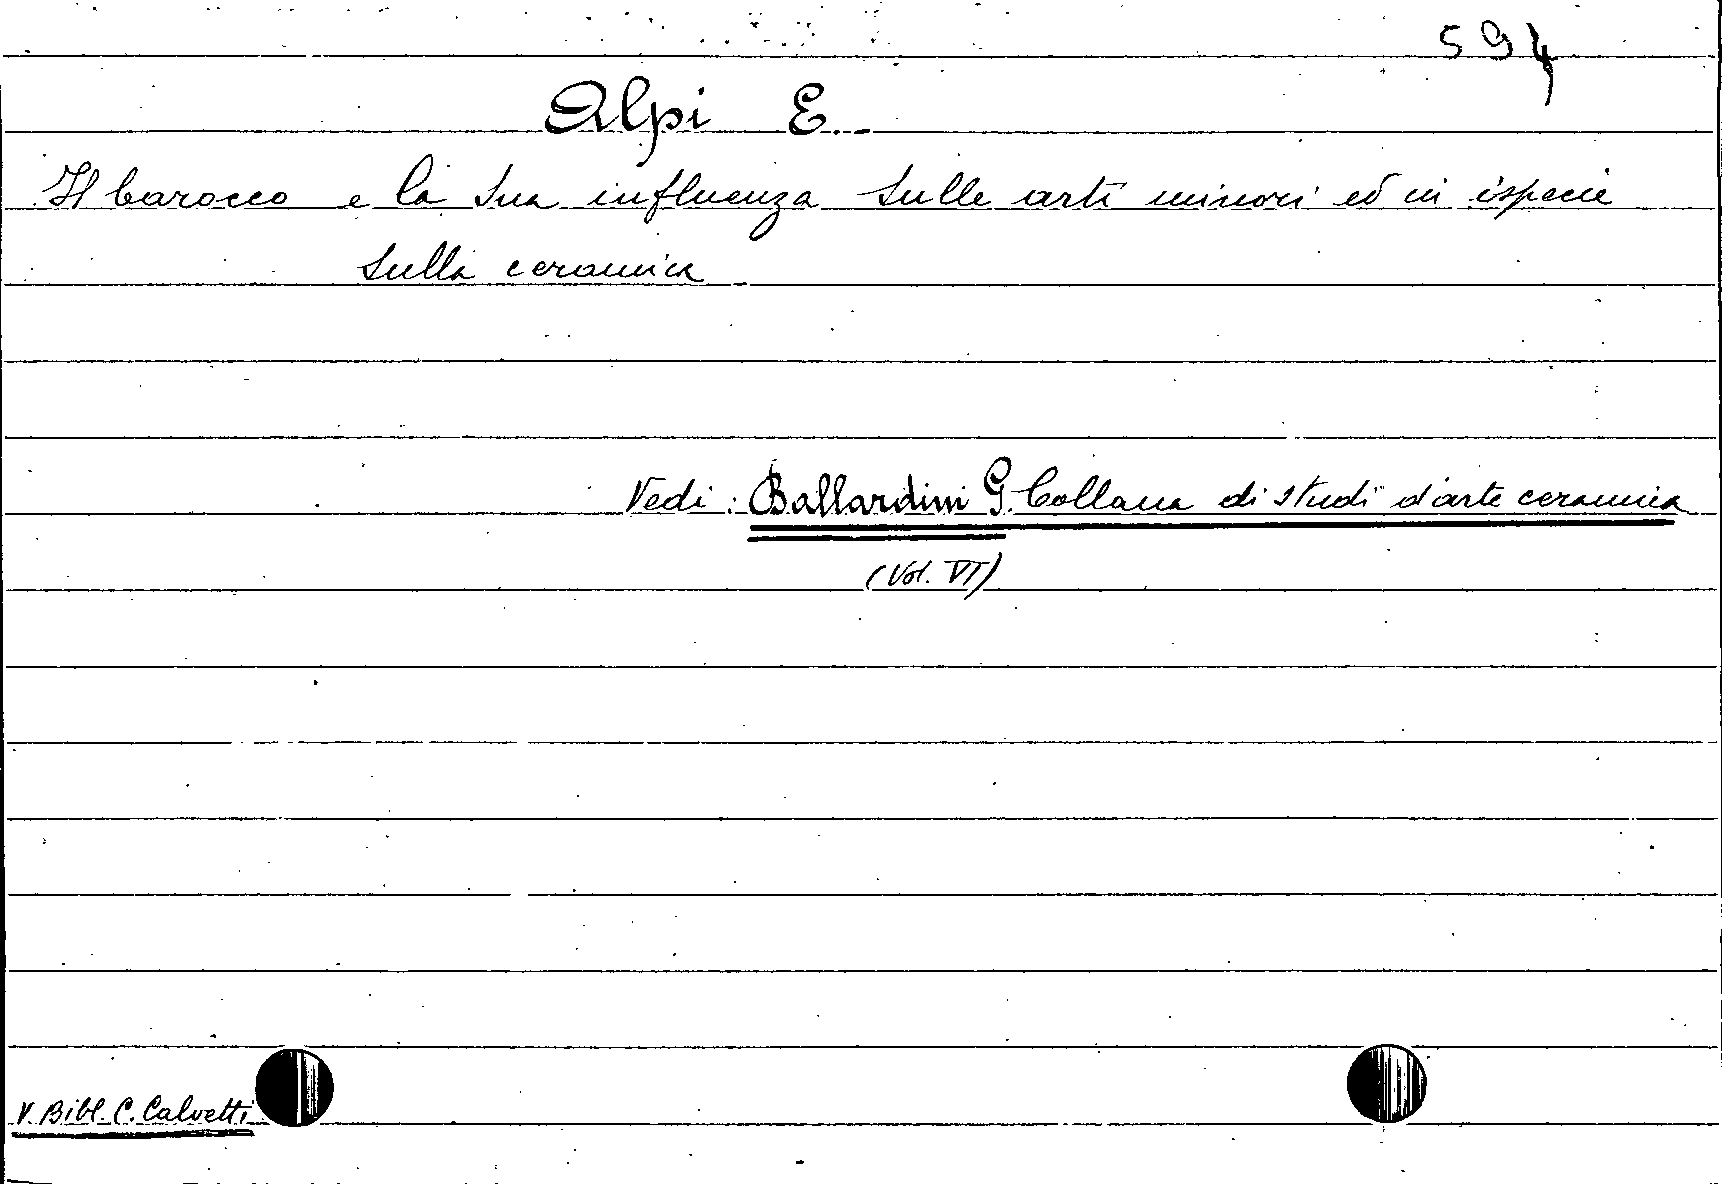 594
Alpi E.
Il barocco e la sua influenza sulle arti minori ed in ispecie
sulla ceramica
Vedi: Ballardini G. Collana di studi d'arte ceramica
(Vol. VI)
V. Bibl. C. Calvetti